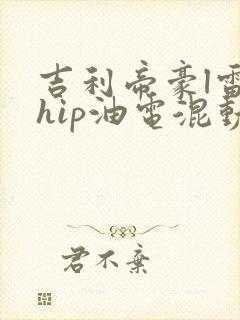 吉利帝豪l雷
hip油电混動
君不棄